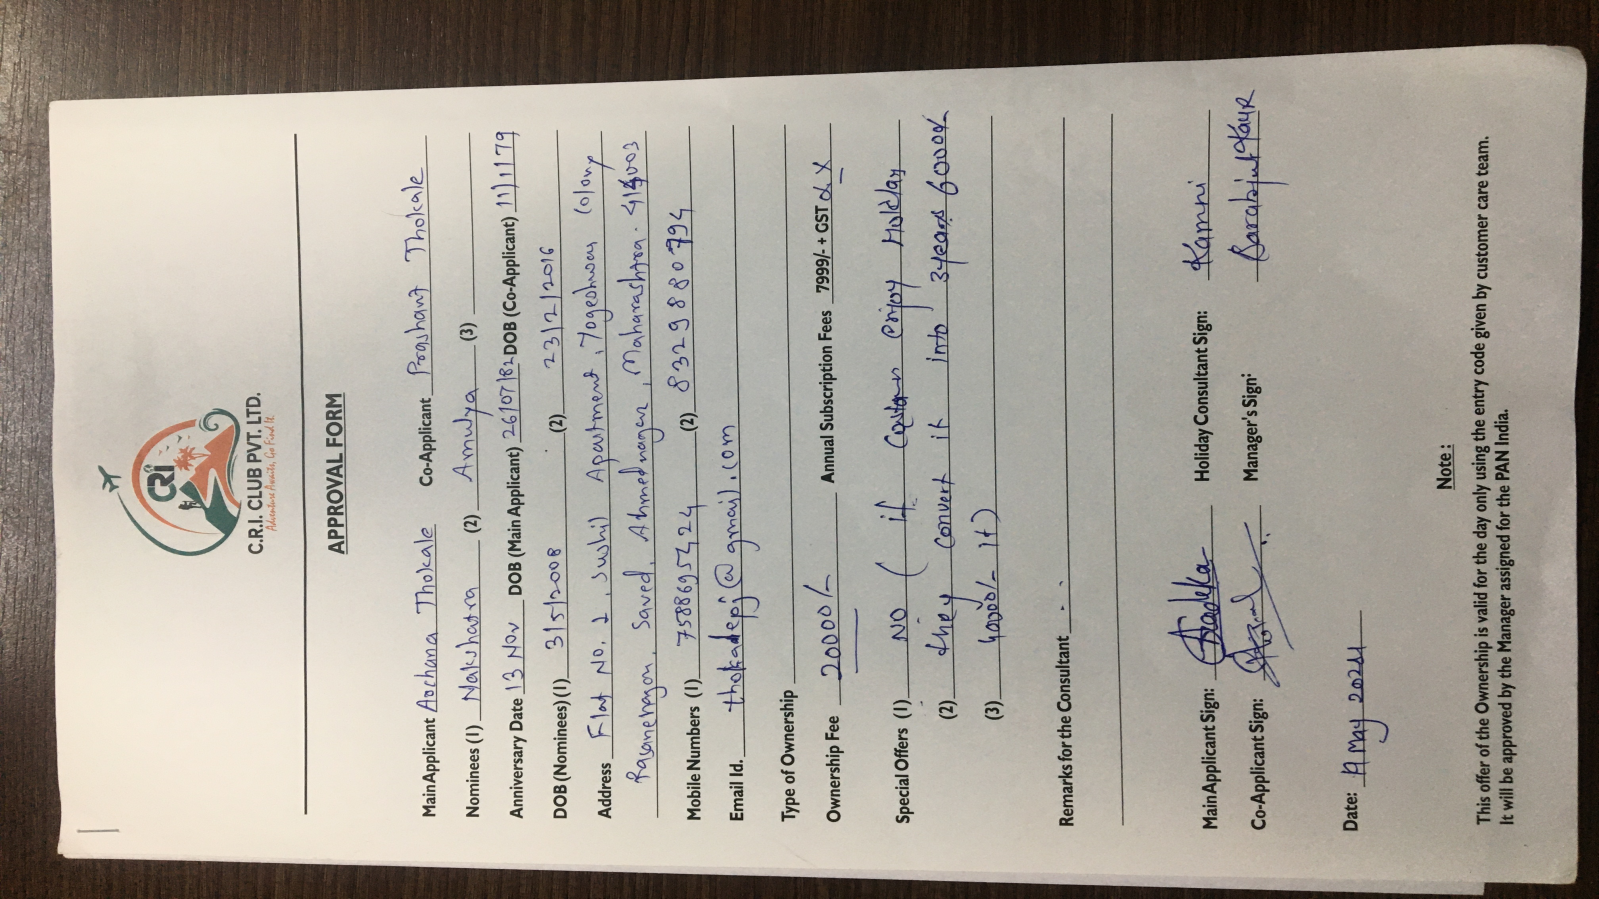 CRI
C.R.I. CLUB PVT. LTD.
Adventure Awaits, Go Find It
APPROVAL FORM
Main Applicant Archana Thokale Co-Applicant Prashant Thokale
Nominees (1) Nakshatra (2) Amulya (3)
Anniversary Date 13 Nov DOB (Main Applicant) 26/07/82 DOB (Co-Applicant) 11/1/79
DOB (Nominees) (1) 3/5/2008 (2) 23/2/2016
Address Flat No. 2, Sushil Apartment, Yogeshwar Colony
Pasanehagon, Saved, Ahmednagar, Maharashtra. 414003
Mobile Numbers (1) 7588695424 (2) 8329880794
Email Id. thokalepj@gmail.com
Type of Ownership
Ownership Fee 20000/- Annual Subscription Fees 7999/- + GST
Special Offers (1) NO ( if enjoy Holiday
(2) they convert it into 3 years 60000/-
(3) 40000/- It)
Remarks for the Consultant
Main Applicant Sign: Holiday Consultant Sign: Kamni
Co-Applicant Sign: Manager's Sign: Kaur
Date: May 2024
Note :
This offer of the Ownership is valid for the day only using the entry code given by customer care team.
It will be approved by the Manager assigned for the PAN India.